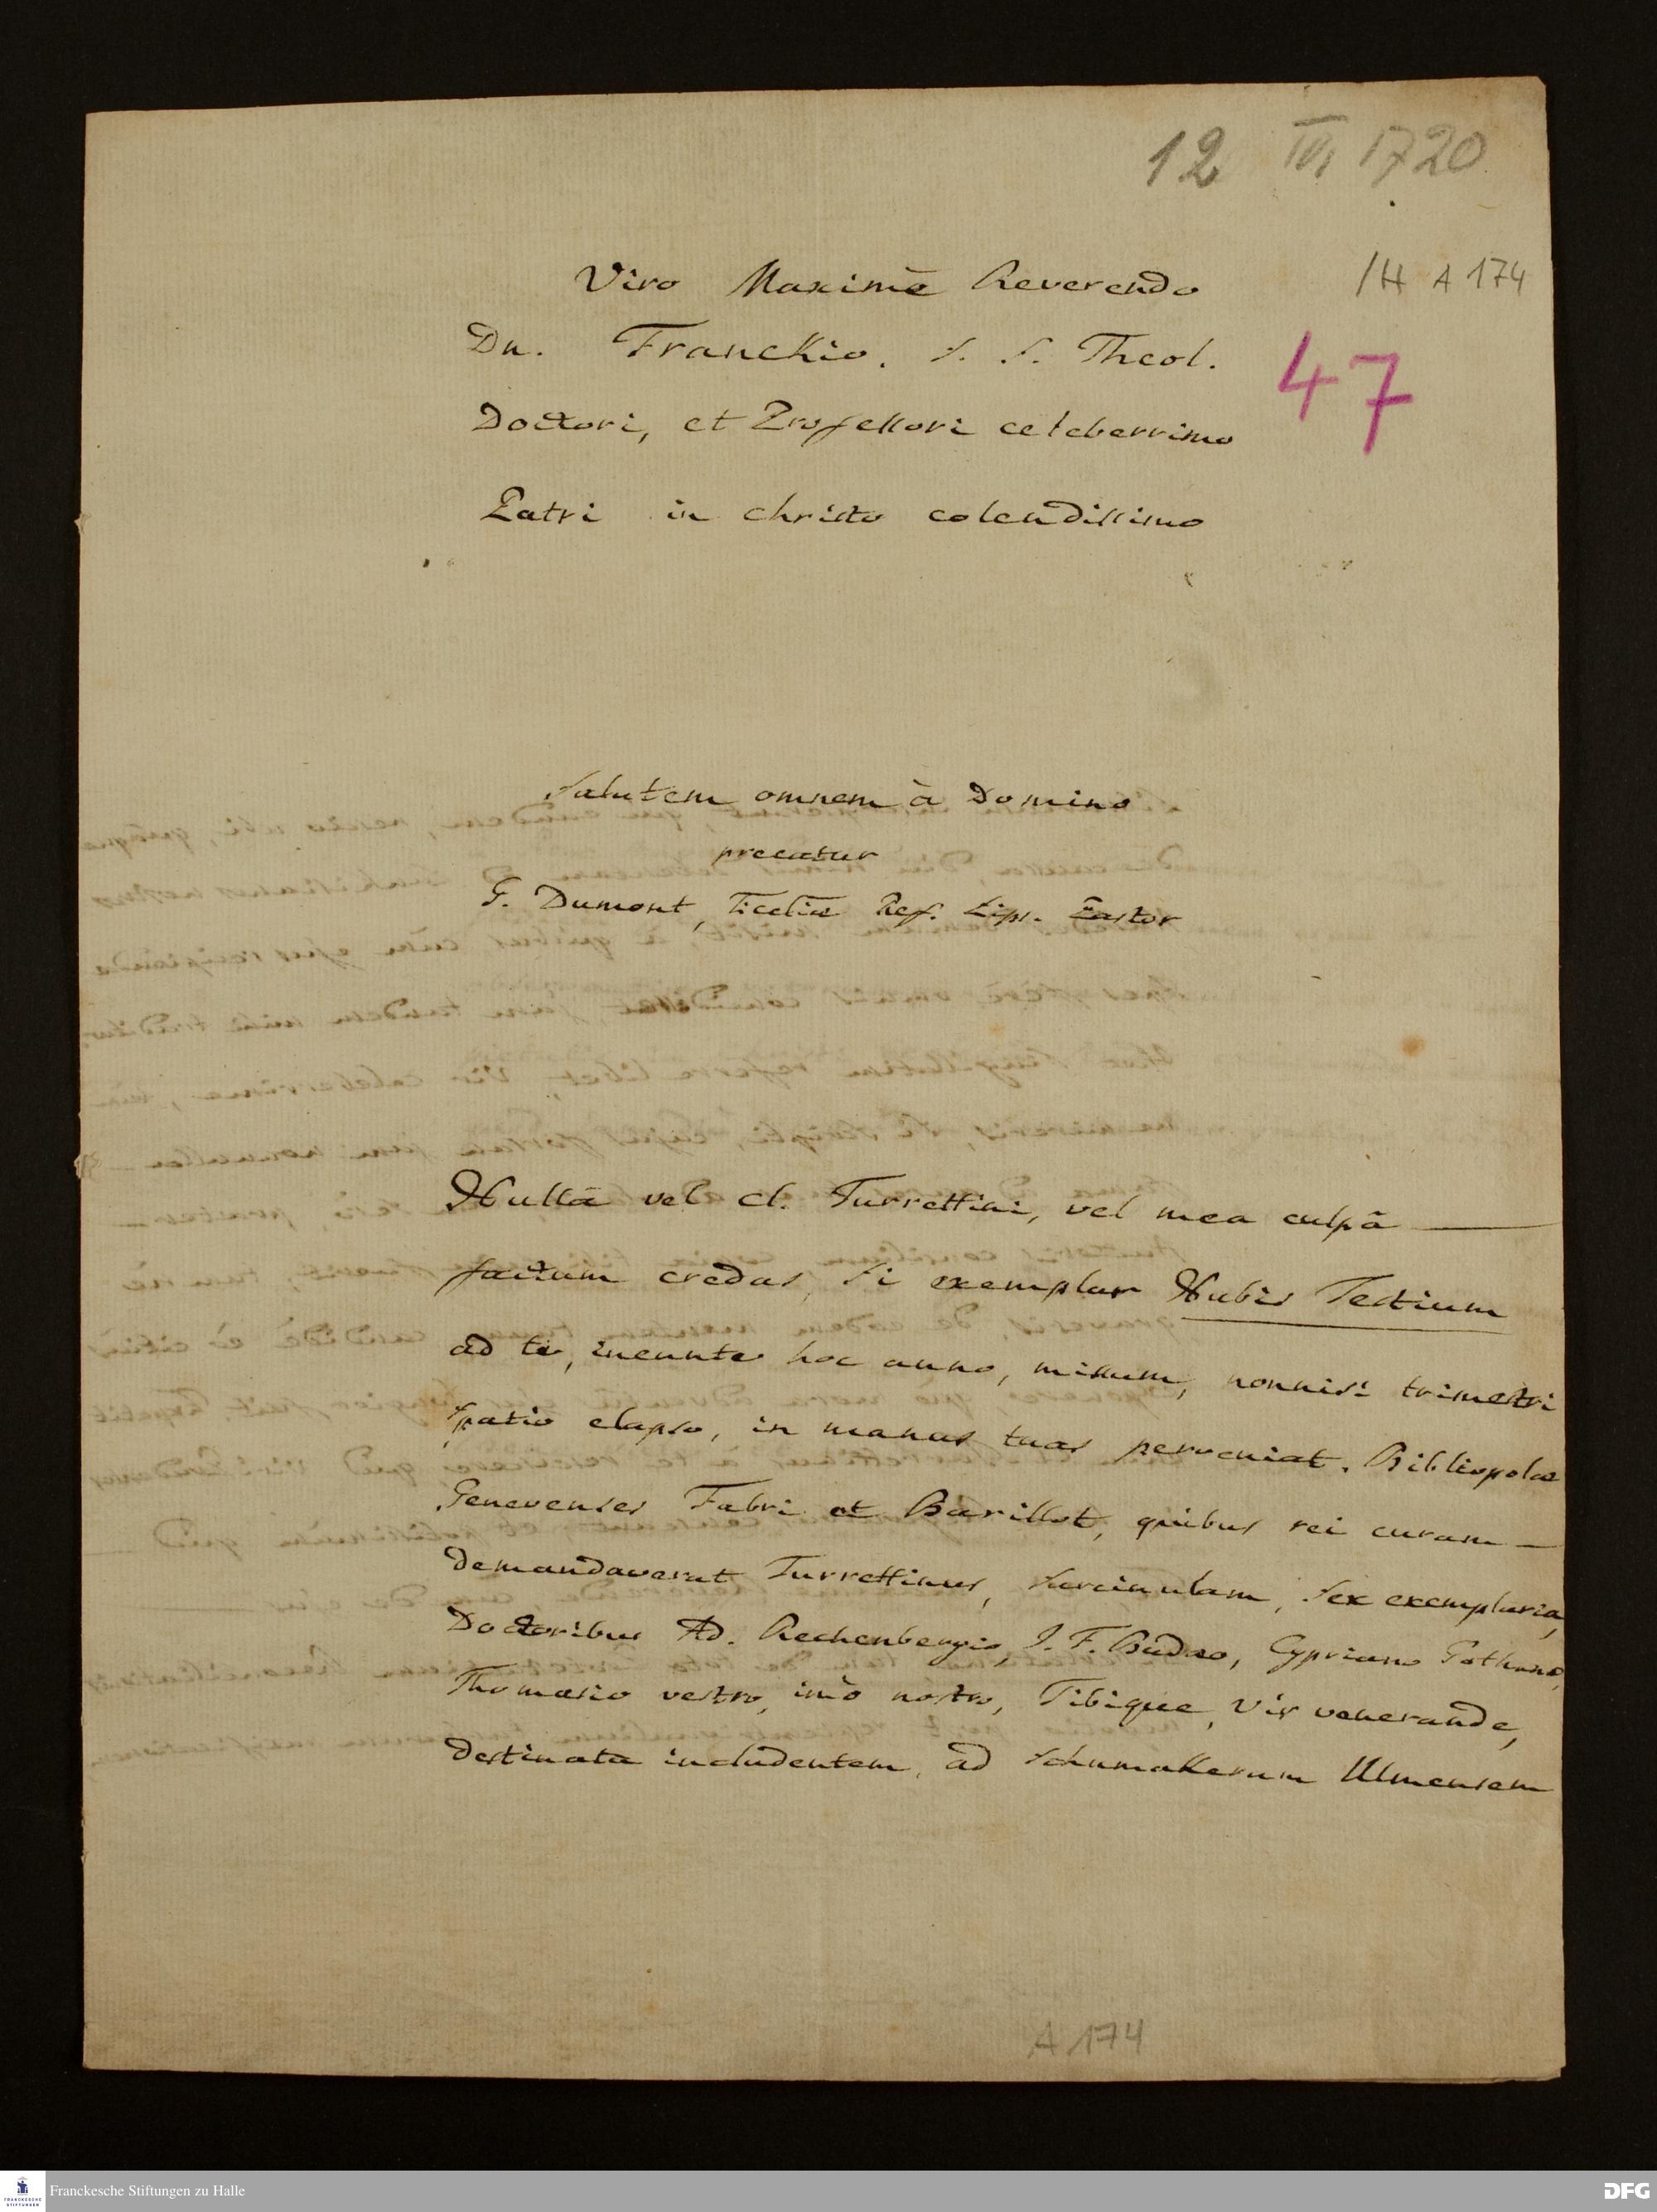 12 VI 1720
/H A 174
47
Viro Maximè Reverendo
Dn. Franckio. S. S. Theol.
Doctori, et Professori celeberrimo
Patri in Christo colendissimo
Salutem omnem à Domino
precatur
G. Dumont, Ecclíæ Ref. Lips. Pastor
Nullâ vel cl. Turrettini, vel mea culpâ —
factum credas, si exemplar Nubis Testium
ad te, ineunte hoc anno, missum, nonnisi trimestri
spatio elapso, in manus tuas perveniat. Bibliopolæ
Genevenses Fabri et Barillot, quibus rei curam —
demandaverat Turrettinus, sarcinulam, sex exemplaria,
Doctoribus Ad. Rechenbergio, J. F. Budæo, Cypriano Gothano,
Thomasio vestro, imò nostro, Tibique, Vir venerande,
destinata includentem, ad Schumakerum Ulmensem
A 174
Franckesche Stiftungen zu Halle
DFG